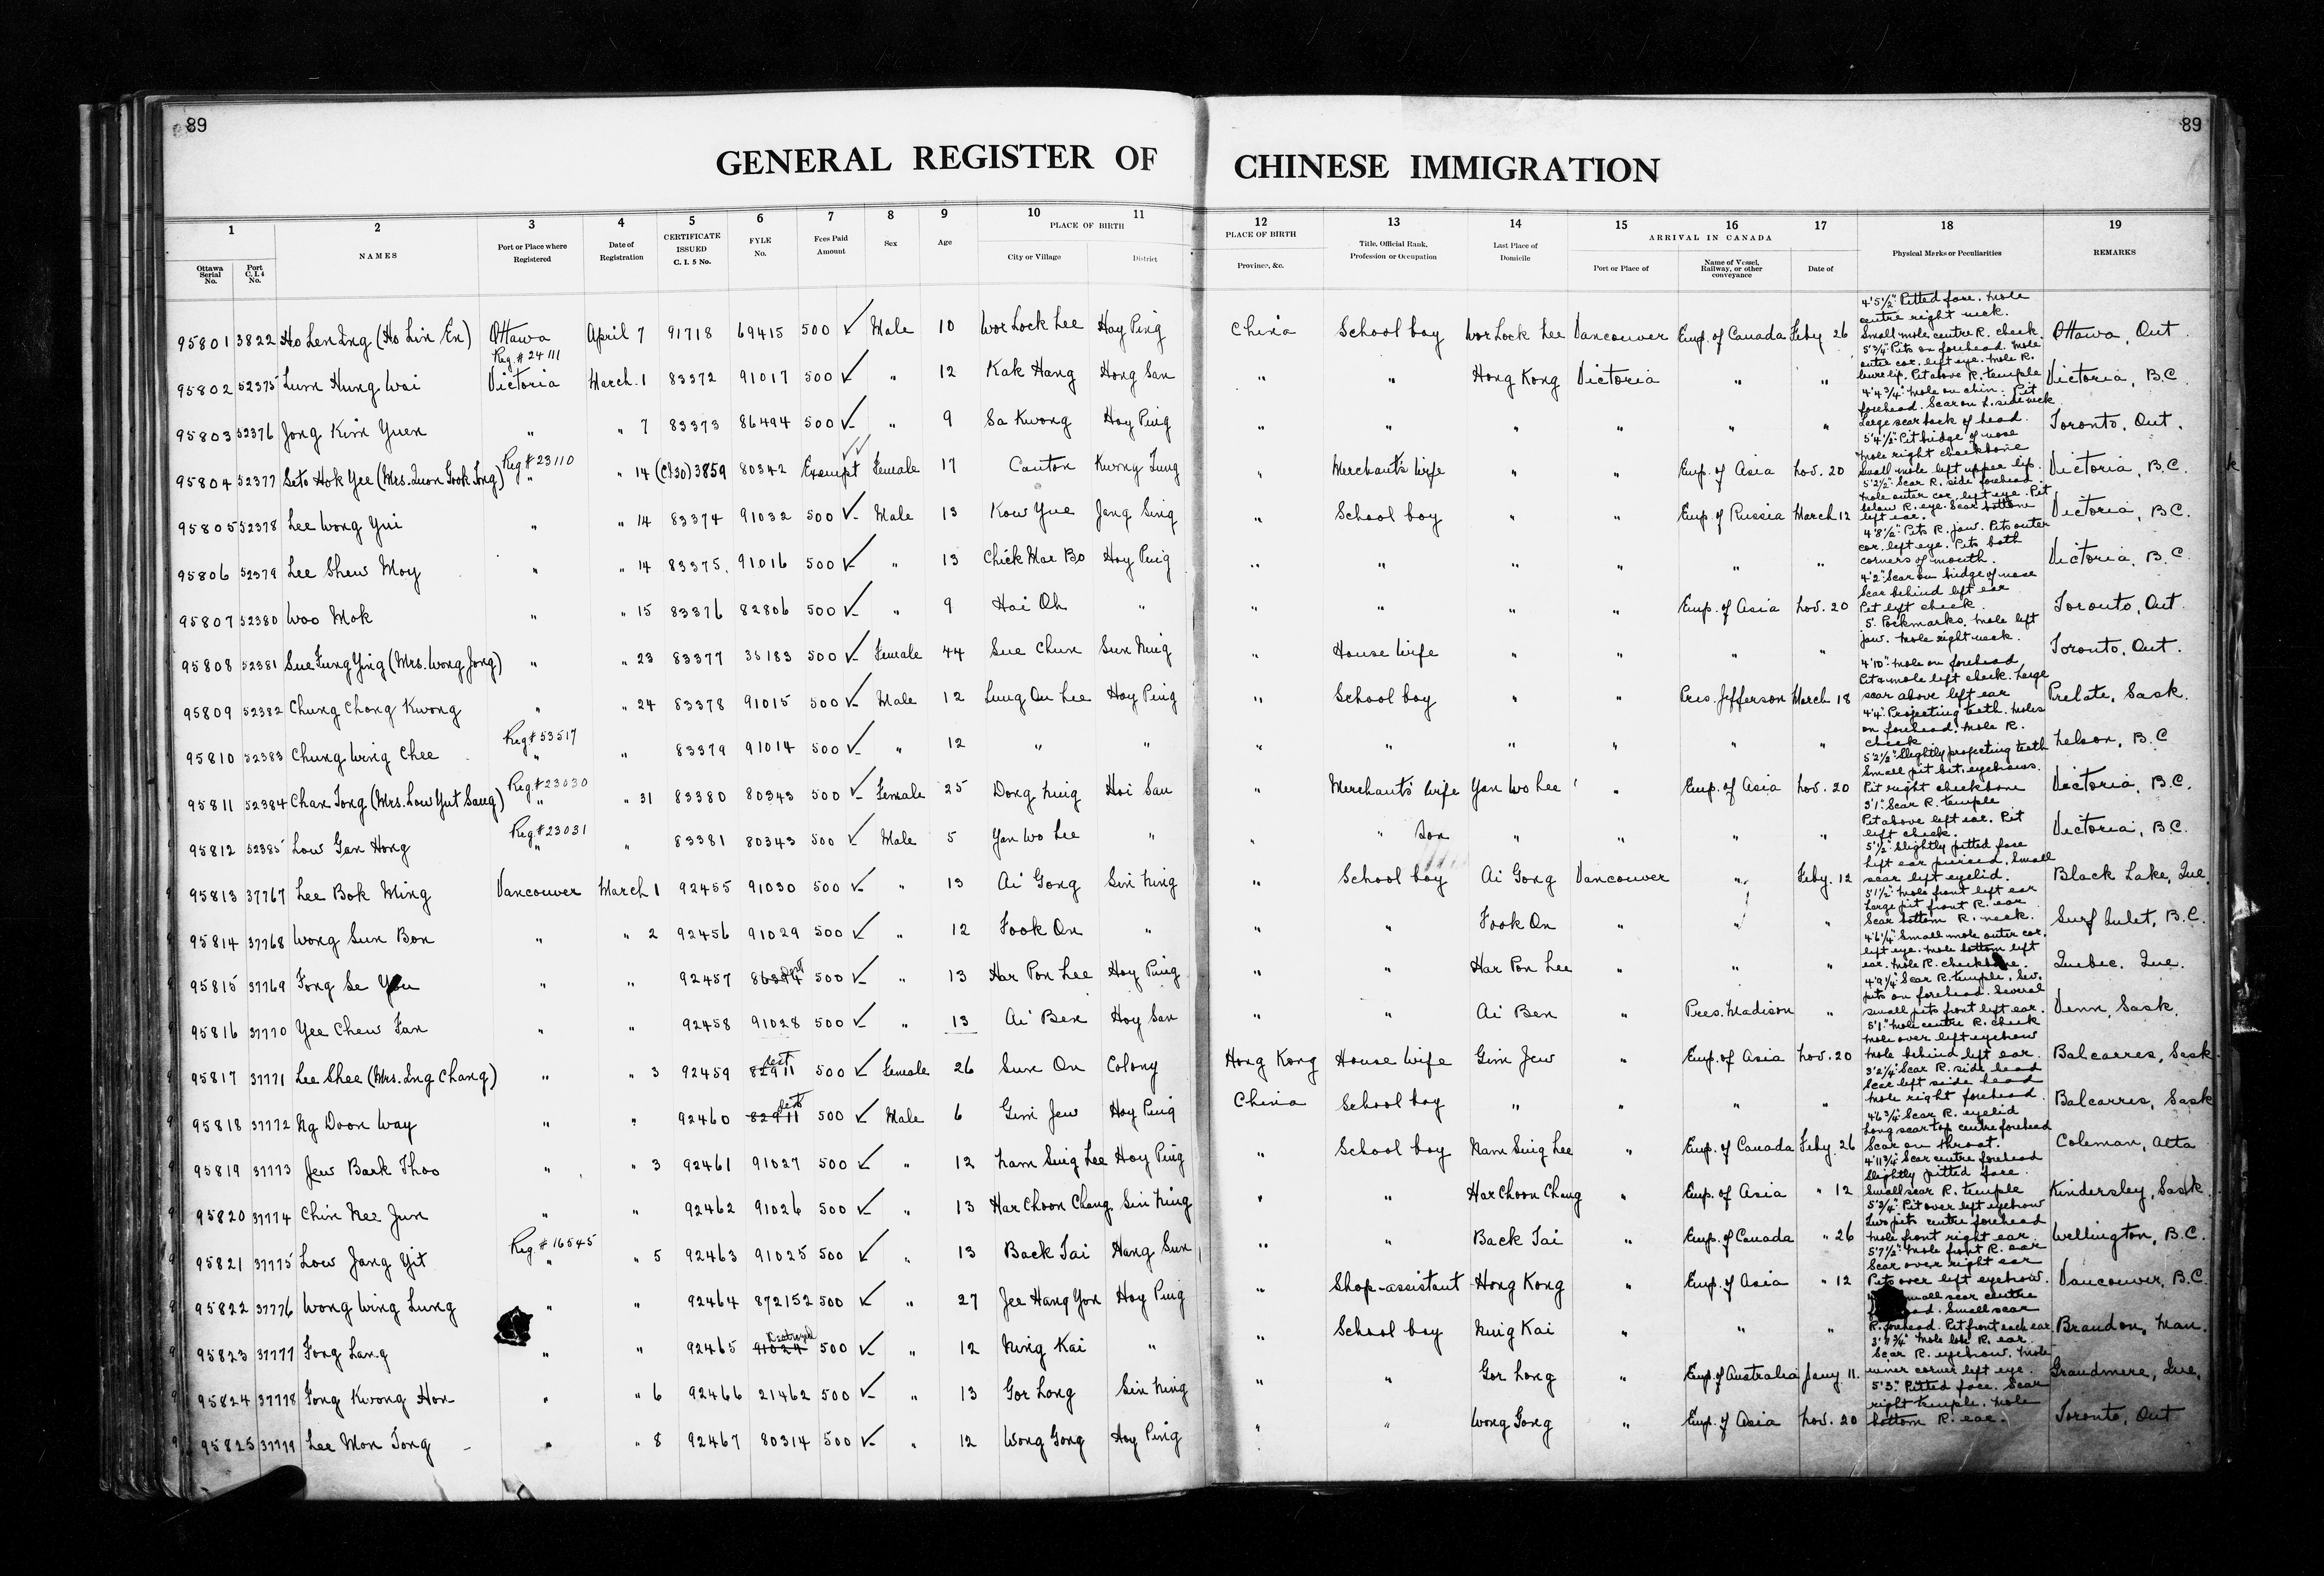 89
89
GENERAL REGISTER OF CHINESE IMMIGRATION
1 2 3 4 5 6 7 8 9 10 11 12 13 14 15 16 17 18 19
Ottawa Serial No.
Port C. I. 4 No.
NAMES
Port or Place where Registered
Date of Registration
CERTIFICATE ISSUED C. I. 5 No.
FYLE No.
Fees Paid Amount
Sex
Age
PLACE OF BIRTH
City or Village
District
PLACE OF BIRTH
Province, &c.
Title, Official Rank, Profession or Occupation
Last Place of Domicile
ARRIVAL IN CANADA
Port or Place of
Name of Vessel, Railway, or other conveyance
Date of
Physical Marks or Peculiarities
REMARKS
95801 3822 Ho Len Ing (Ho Lin En) Ottawa April 7 91718 69415 500 ✓ Male 10 Wor Lock Lee Hoy Ping China School boy Wor Lock Lee Vancouver Emp. of Canada Feby 26 4'5½" Pitted face. Mole centre right neck. Small mole centre R. cheek Ottawa, Ont.
95802 52375 Lum Hung Wai Reg. # 24111 Victoria March 1 83372 91017 500 ✓ " 12 Kak Hang Hong San " " Hong Kong Victoria " " 5'¾" Pits on forehead. Mole outer cor. left eye. Mole R. lip. Pit above R. temple Victoria, B.C.
95803 52376 Jong Kim Yuen " " 7 83373 86494 500 ✓ " 9 Sa Kwong Hoy Ping " " " " " " 4'4¾" Mole on chin. Pit forehead. Scar on L. side neck Large scar back of head. Toronto, Ont.
95804 52377 Seto Hok Yee (Mrs. Quon Gook Tong) Reg # 23110 " " 14 (CI30) 3859 80342 Exempt ✓✓ Female 17 Canton Kwong Tung " Merchant's Wife " " Emp. of Asia Nov. 20 5'4½" Pit bridge of nose Mole right cheekbone Small mole left upper lip. Victoria, B.C.
95805 52378 Lee Wong Yui " " 14 83374 91032 500 ✓ Male 13 Kow Yue Jang Sing " School boy " " Emp. of Russia March 12 5'2½" Scar R. side forehead Mole outer cor. left eye. Pit below R. eye. Scar bottom left ear. Victoria, B.C.
95806 52379 Lee Shew Moy " " 14 83375 91016 500 ✓ " 13 Chick Mae Bo Hoy Ping " " " " " " 4'8½" Pits R. jaw. Pits outer cor. left eye. Pits both corners of mouth. Victoria, B.C.
95807 52380 Woo Mok " " 15 83376 82806 500 ✓ " 9 Hoi Oh " " " " " Emp. of Asia Nov. 20 4'2" Scar on bridge of nose Scar behind left ear Pit left cheek. Toronto, Ont.
95808 52381 Sue Fung Ying (Mrs. Wong Jong) " " 23 83377 35183 500 ✓ Female 44 Sue Chun Sun Ning " House Wife " " " " 5' Pockmarks. Mole left jaw. Mole right neck. Toronto, Ont.
95809 52382 Chung Chong Kwong " " 24 83378 91015 500 ✓ Male 12 Lung On Lee Hoy Ping " School boy " " Pres. Jefferson March 18 4'10" Mole on forehead Pit & mole left cheek. Large scar above left ear Prelate, Sask.
95810 52383 Chung Wing Chee Reg # 53517 " " 83379 91014 500 ✓ " 12 " " " " " " " " 4'4" Projecting teeth. Moles on forehead. Mole R. cheek Nelson, B.C.
95811 52384 Chan Tong (Mrs. Low Yut Sang) Reg. # 23030 " " 31 83380 80343 500 ✓ Female 25 Dong Ning Hoi San " Merchant's Wife Yan Wo Lee " Emp. of Asia Nov. 20 5'2½" Slightly projecting teeth Small pit bet. eyebrows. Pit right cheekbone Victoria, B.C.
95812 52385 Low Gan Hong Reg. # 23031 " " 83381 80343 500 ✓ Male 5 Yan Wo Lee " " " Son " " " " 3'1" Scar R. temple Pit above left ear. Pit left cheek. Victoria, B.C.
95813 37767 Lee Bok Ming Vancouver March 1 92455 91030 500 ✓ " 13 Ai Gong Sin Ning " School boy Ai Gong Vancouver " Feby. 12 5'½" Slightly pitted face Left ear pierced. Small scar left eyelid. Black Lake, Que.
95814 37768 Wong Sun Bon " " 2 92456 91029 500 ✓ " 12 Fook On " " " Fook On " " " 5'1½" Mole front left ear Large pit front R. ear Scar bottom R. neck. Surf Inlet, B.C.
95815 37769 Fong Se You " " 92457 500 ✓ " 13 Har Pon Lee Hoy Ping " " Har Pon Lee " " " 4'6¼" Small mole outer cor. left eye. Mole bottom left ear. Mole R. cheekbone. Quebec, Que.
95816 37770 Yee Chew Fan " " 92458 91028 500 ✓ " 13 Ai Ben Hoy San " " Ai Ben " Pres. Madison " 4'9¼" Scar R. temple. Sev. pits on forehead. Several small pits front left ear. Venn, Sask.
95817 37771 Lee Shee (Mrs. Ing Chang) " " 3 92459 82911 dest 500 ✓ Female 26 Sun On Colony Hong Kong House Wife Gim Jew " Emp. of Asia Nov. 20 5'1" Mole centre R. cheek Mole over left eyebrow Mole behind left ear. Balcarres, Sask.
95818 37772 Ng Doon Way " " 92460 82911 dest 500 ✓ Male 6 Gim Jew Hoy Ping China School boy " " " " 3'2¼" Scar R. side head Scar left side head Mole right forehead Balcarres, Sask
95819 37773 Jew Bark Thoo " " 3 92461 91027 500 ✓ " 12 Nam Sing Lee Hoy Ping " School boy Nam Sing Lee " Emp. of Canada Feby. 26 4'6¾" Scar R. eyelid Long scar top centre forehead Scar on throat. Coleman, Alta
95820 37774 Chin Nee Jun " " 92462 91026 500 ✓ " 13 Har Choon Chang Sin Ning " " Har Choon Chang " Emp. of Asia " 12 4'11¾" Scar centre forehead Slightly pitted face. Small scar R. temple Kindersley, Sask.
95821 37775 Low Jang Yit Reg. # 16545 " " 5 92463 91025 500 ✓ " 13 Back Tai Hang Sun " " Back Tai " Emp. of Canada " 26 5'¾" Pit over left eyebrow Two pits centre forehead Mole front right ear Wellington, B.C.
95822 37776 Wong Wing Lung " " 92464 872152 500 ✓ " 27 Jee Hang Yon Hoy Ping " Shop-assistant Hong Kong " Emp. of Asia " 12 5'7½" Mole front R. ear Scar over right ear Pits over left eyebrow. Vancouver, B.C.
95823 37777 Fong Lang " " 92465 91024 Destroyed 500 ✓ " 12 Ning Kai " " School boy Ning Kai " " " small scar centre Small scar R. forehead. Pit front each ear Brandon, Man.
95824 37778 Fong Kwong Hon " " 6 92466 21462 500 ✓ " 13 Gor Long Sin Ning " " Gor Long " Emp. of Australia Jany. 11. Mole lobe R. ear Scar R. eyebrow. Mole inner corner left eye. Grandmere, Que.
95825 37779 Lee Mon Tong " " 8 92467 80314 500 ✓ " 12 Wong Gong Hoy Ping " " Wong Gong " Emp. of Asia Nov. 20 5'3" Pitted face. Scar right temple. Mole bottom R. ear. Toronto, Ont